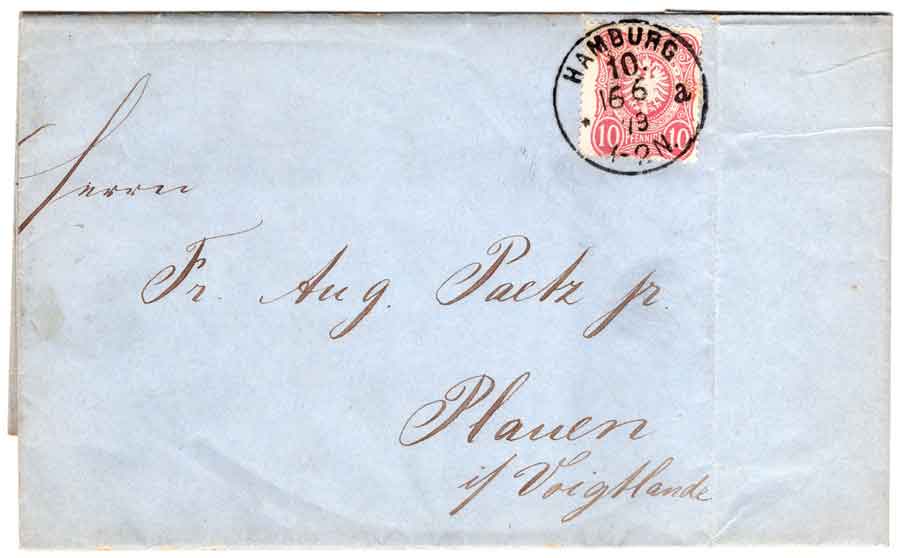 HAMBURG
10.
16 6 a
79
1-2N.
10 PFENNIG 10
Herrn
Fr. Aug. Paetz jr.
Plauen
i/ Voigtlande